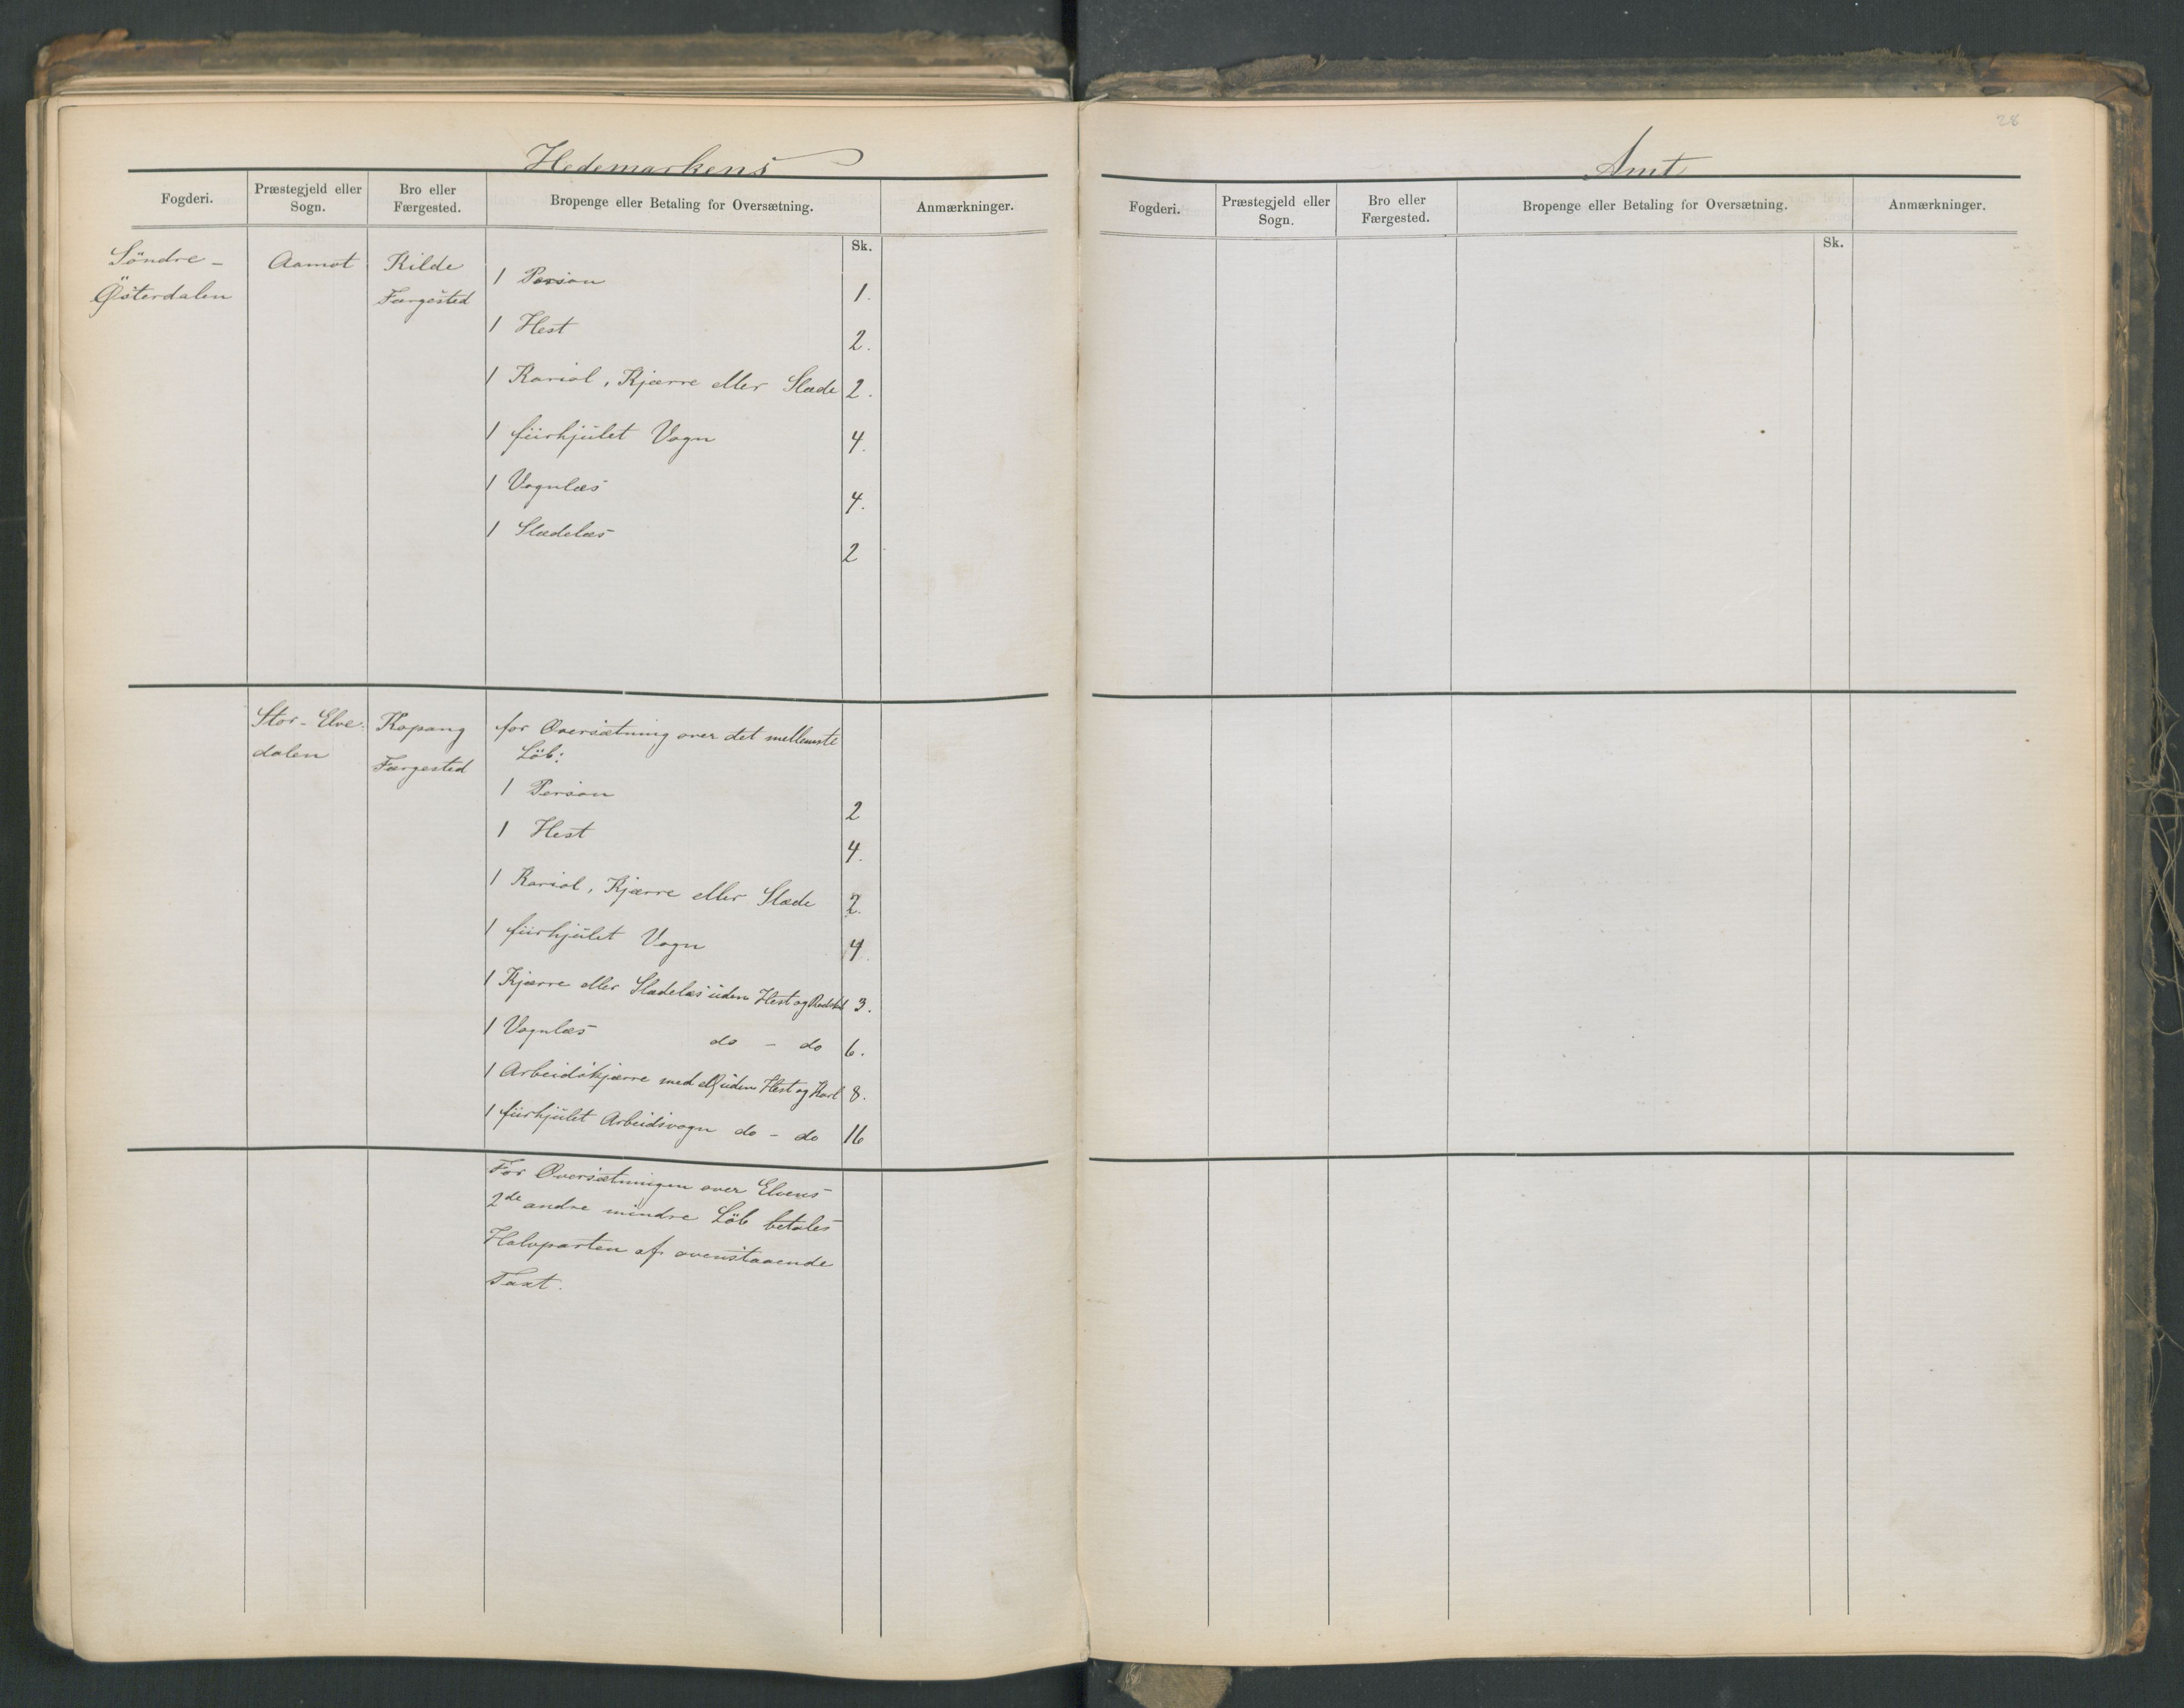 Hedemarkens
Fogderi.
Præstegjeld eller
Sogn.
Bro eller
Færgested.
Bropenge eller Betaling for Oversætning.
Anmærkninger.
Sk.
Söndre-
Østerdalen
Aamot
Kilde
Færgested
1 Person 1.
1 Hest 2.
1 Kariol, Kjærre eller Slæde 2.
1 fiirhjulet Vogn 4.
1 Vognlæs 4.
1 Slædelæs 2
Stor-Elve-
dalen
Kopang
Færgested
for Oversætning over det mellemste
Löb:
1 Person 2
1 Hest 4.
1 Kariol, Kjærre eller Slæde 2.
1 fiirhjulet Vogn 4.
1 Kjærre eller Slædelæs uden Hest og Redskab 3.
1 Vognlæs do - do 6.
1 Arbeidskjærre med ell. uden Hest og Karl 8.
1 fiirhjulet Arbeidsvogn do - do 16
For Oversætningen over Elvens
2de andre mindre Löb betales
Halvparten af ovenstaaende
Taxt.
28
Amt
Fogderi.
Præstegjeld eller
Sogn.
Bro eller
Færgested.
Bropenge eller Betaling for Oversætning.
Anmærkninger.
Sk.